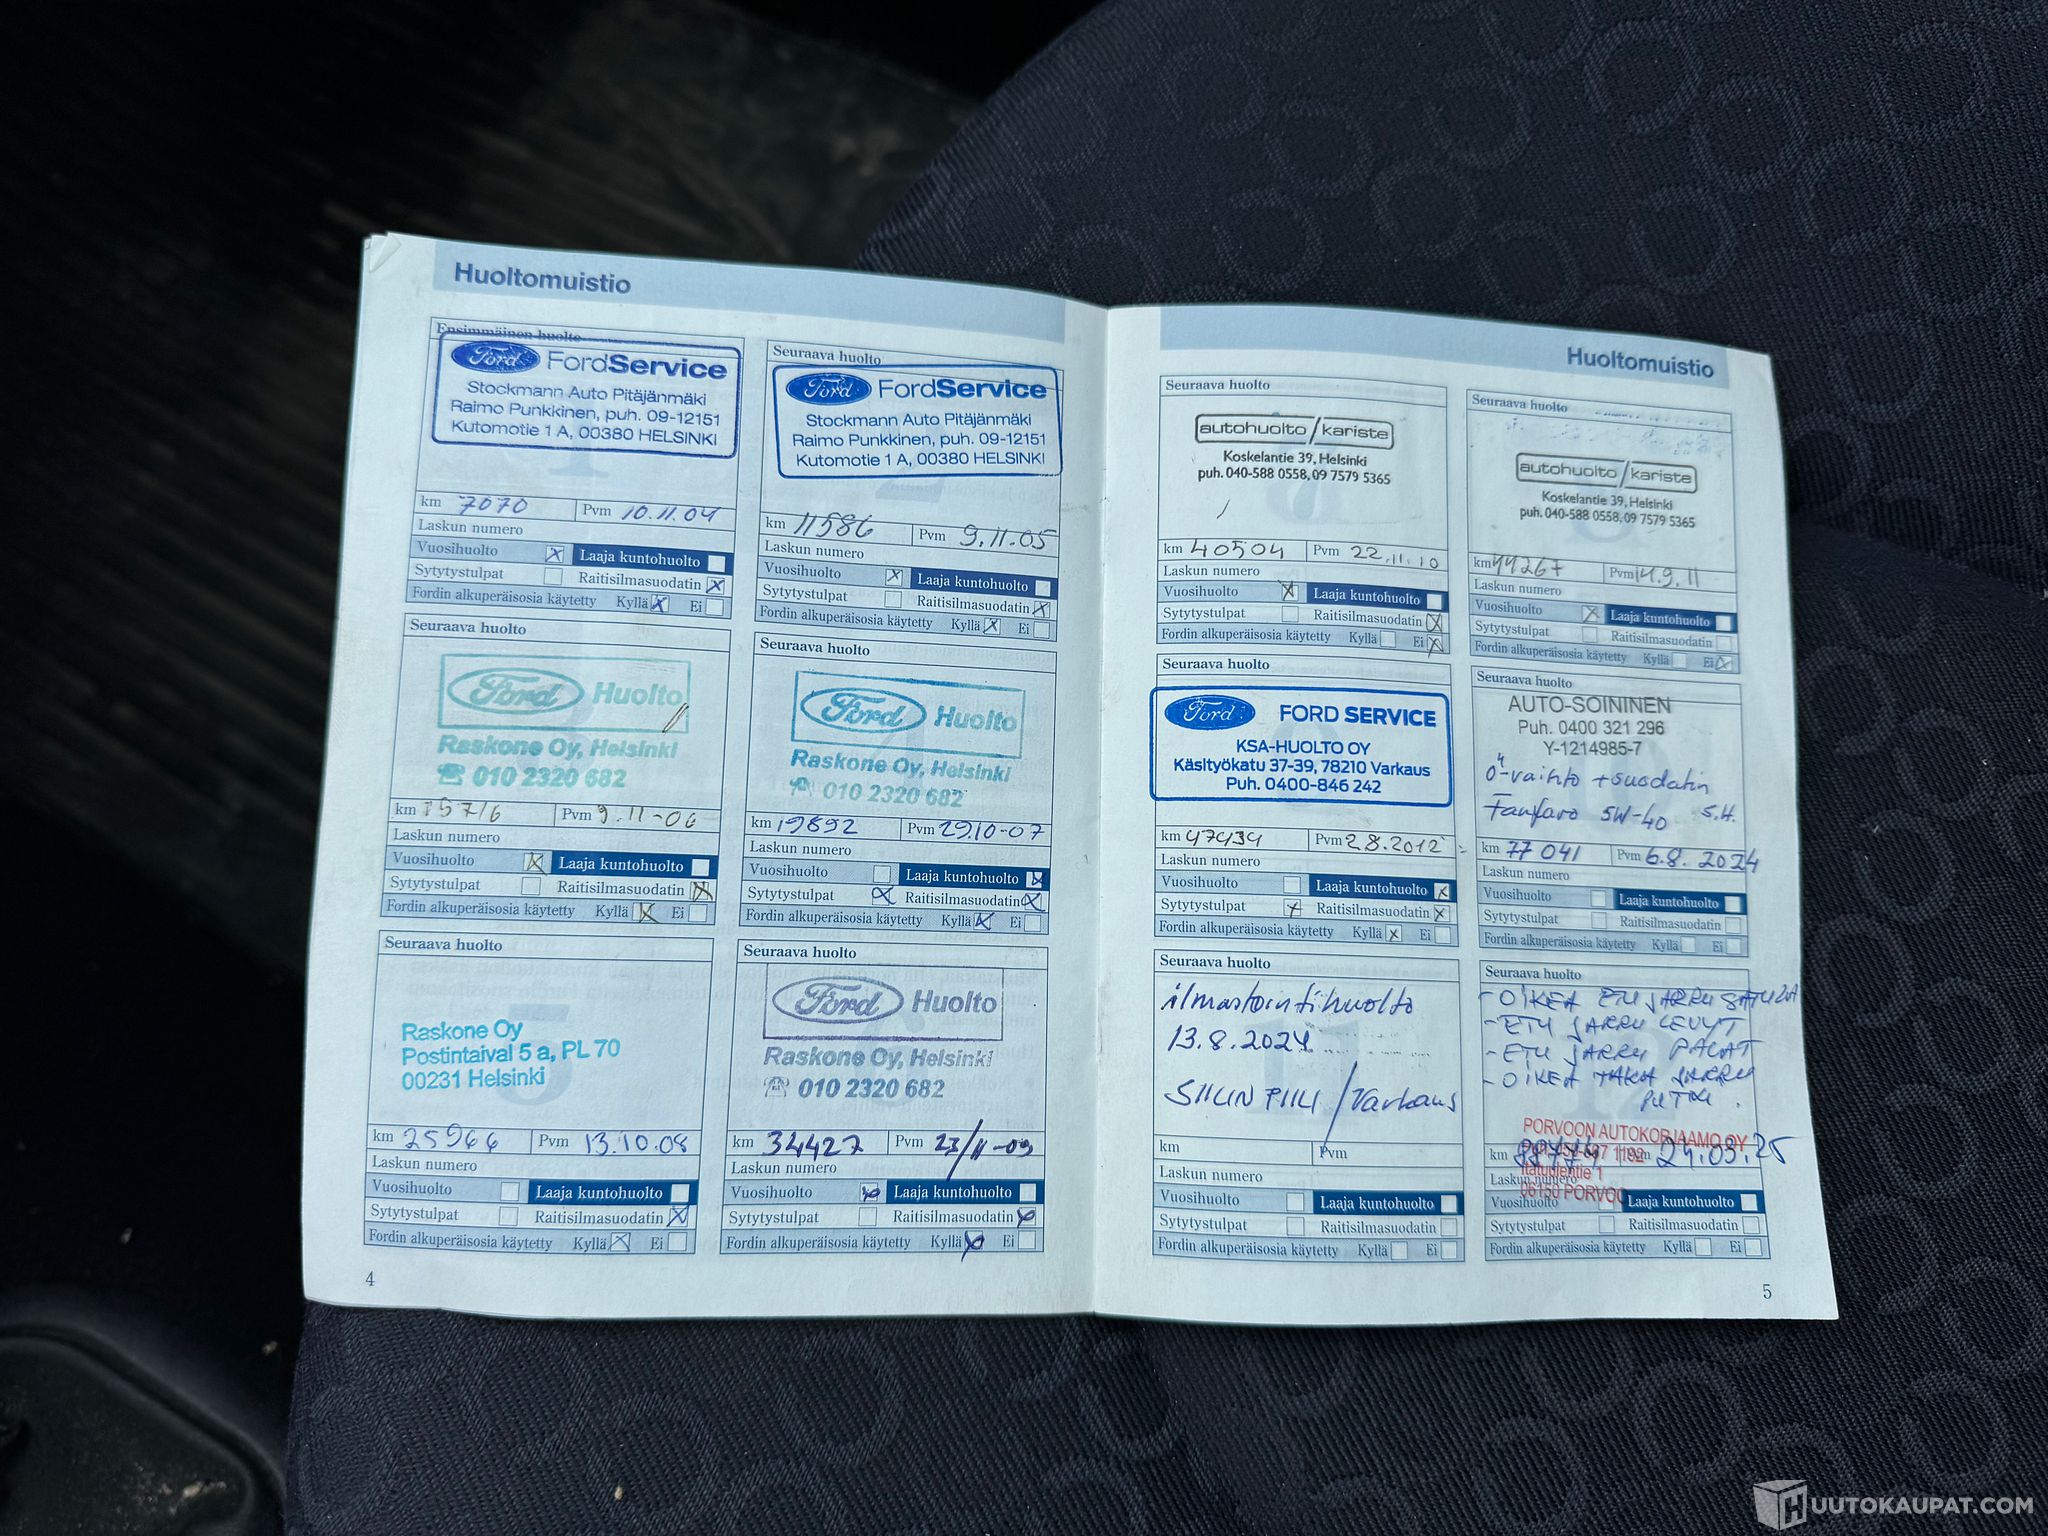 Huoltomuistio
Ensimmäinen huolto
Ford FordService
Stockmann Auto Pitäjänmäki
Raimo Punkkinen, puh. 09-12151
Kutomotie 1 A, 00380 HELSINKI
km 7070 Pvm 10.11.04
Laskun numero
Vuosihuolto X Laaja kuntohuolto
Sytytystulpat Raitisilmasuodatin X
Fordin alkuperäisosia käytetty Kyllä X Ei
Seuraava huolto
Ford FordService
Stockmann Auto Pitäjänmäki
Raimo Punkkinen, puh. 09-12151
Kutomotie 1 A, 00380 HELSINKI
km 11586 Pvm 9.11.05
Laskun numero
Vuosihuolto X Laaja kuntohuolto
Sytytystulpat Raitisilmasuodatin X
Fordin alkuperäisosia käytetty Kyllä X Ei
Seuraava huolto
Ford Huolto
Raskone Oy, Helsinki
☎ 010 2320 682
km 15716 Pvm 9.11-06
Laskun numero
Vuosihuolto X Laaja kuntohuolto
Sytytystulpat Raitisilmasuodatin X
Fordin alkuperäisosia käytetty Kyllä X Ei
Seuraava huolto
Ford Huolto
Raskone Oy, Helsinki
☎ 010 2320 682
km 19892 Pvm 29.10-07
Laskun numero
Vuosihuolto Laaja kuntohuolto X
Sytytystulpat X Raitisilmasuodatin X
Fordin alkuperäisosia käytetty Kyllä X Ei
Seuraava huolto
Raskone Oy
Postintaival 5 a, PL 70
00231 Helsinki
km 25966 Pvm 13.10.08
Laskun numero
Vuosihuolto Laaja kuntohuolto
Sytytystulpat Raitisilmasuodatin X
Fordin alkuperäisosia käytetty Kyllä X Ei
Seuraava huolto
Ford Huolto
Raskone Oy, Helsinki
☎ 010 2320 682
km 34427 Pvm 23/11-09
Laskun numero
Vuosihuolto X Laaja kuntohuolto
Sytytystulpat Raitisilmasuodatin X
Fordin alkuperäisosia käytetty Kyllä X Ei
4
Huoltomuistio
Seuraava huolto
autohuolto/kariste
Koskelantie 39, Helsinki
puh. 040-588 0558, 09 7579 5365
km 40504 Pvm 22.11.10
Laskun numero
Vuosihuolto X Laaja kuntohuolto
Sytytystulpat Raitisilmasuodatin X
Fordin alkuperäisosia käytetty Kyllä Ei X
Seuraava huolto
autohuolto/kariste
Koskelantie 39, Helsinki
puh. 040-588 0558, 09 7579 5365
km 44267 Pvm 14.9.11
Laskun numero
Vuosihuolto X Laaja kuntohuolto
Sytytystulpat Raitisilmasuodatin
Fordin alkuperäisosia käytetty Kyllä Ei X
Seuraava huolto
Ford FORD SERVICE
KSA-HUOLTO OY
Käsityökatu 37-39, 78210 Varkaus
Puh. 0400-846 242
km 47434 Pvm 2.8.2012
Laskun numero
Vuosihuolto Laaja kuntohuolto X
Sytytystulpat X Raitisilmasuodatin X
Fordin alkuperäisosia käytetty Kyllä X Ei
Seuraava huolto
AUTO-SOININEN
Puh. 0400 321 296
Y-1214985-7
Ö-vaihto + suodatin
Fanfaro 5W-40 S.H.
km 77 041 Pvm 6.8. 2024
Laskun numero
Vuosihuolto Laaja kuntohuolto
Sytytystulpat Raitisilmasuodatin
Fordin alkuperäisosia käytetty Kyllä Ei
Seuraava huolto
ilmastointihuolto
13.8.2024
SIILIN PIILI / Varkaus
km Pvm
Laskun numero
Vuosihuolto Laaja kuntohuolto
Sytytystulpat Raitisilmasuodatin
Fordin alkuperäisosia käytetty Kyllä Ei
Seuraava huolto
- OIKEA ETU JARRU SATULA
- ETU JARRU LEVYT
- ETU JARRU PALAT
- OIKEA TAKA JARRU
PUTKI.
PORVOON AUTOKORJAAMO OY
km Pvm 24.03.25
Laskun
Tatuulentie 1
06150 PORVOO
Vuosihuolto Laaja kuntohuolto
Sytytystulpat Raitisilmasuodatin
Fordin alkuperäisosia käytetty Kyllä Ei
5
HUUTOKAUPAT.COM